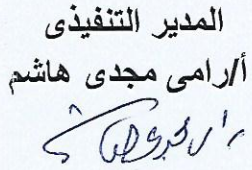 المدير التنفيذى
أ/رامى مجدى هاشم